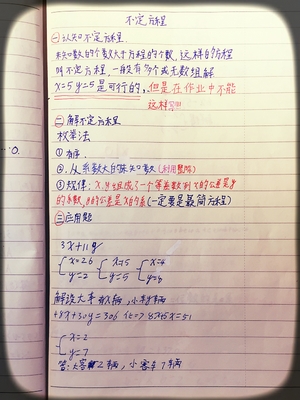 不定方程
㊀认知不定方程
未知数的个数大于方程的个数,这样的方程
叫不定方程,一般有多个或无数组解
x=5 y=5是可行的,但是在作业中不能
这样写!!!
㊁解不定方程
枚举法
①有序
②.从系数大的未知数(利用整除)
③规律:x.y组成了一个等差数列 x的公差是y
的系数,y的公差是x的系(一定要是最简方程)
㊂应用题
3x+11y
x=26 x=15 x=4
y=2 y=5 y=8
解设大车x辆,小y辆
48x+30y=306 化=> 8x+5y=51
x=2
y=7
答:大客车2辆,小客车7辆